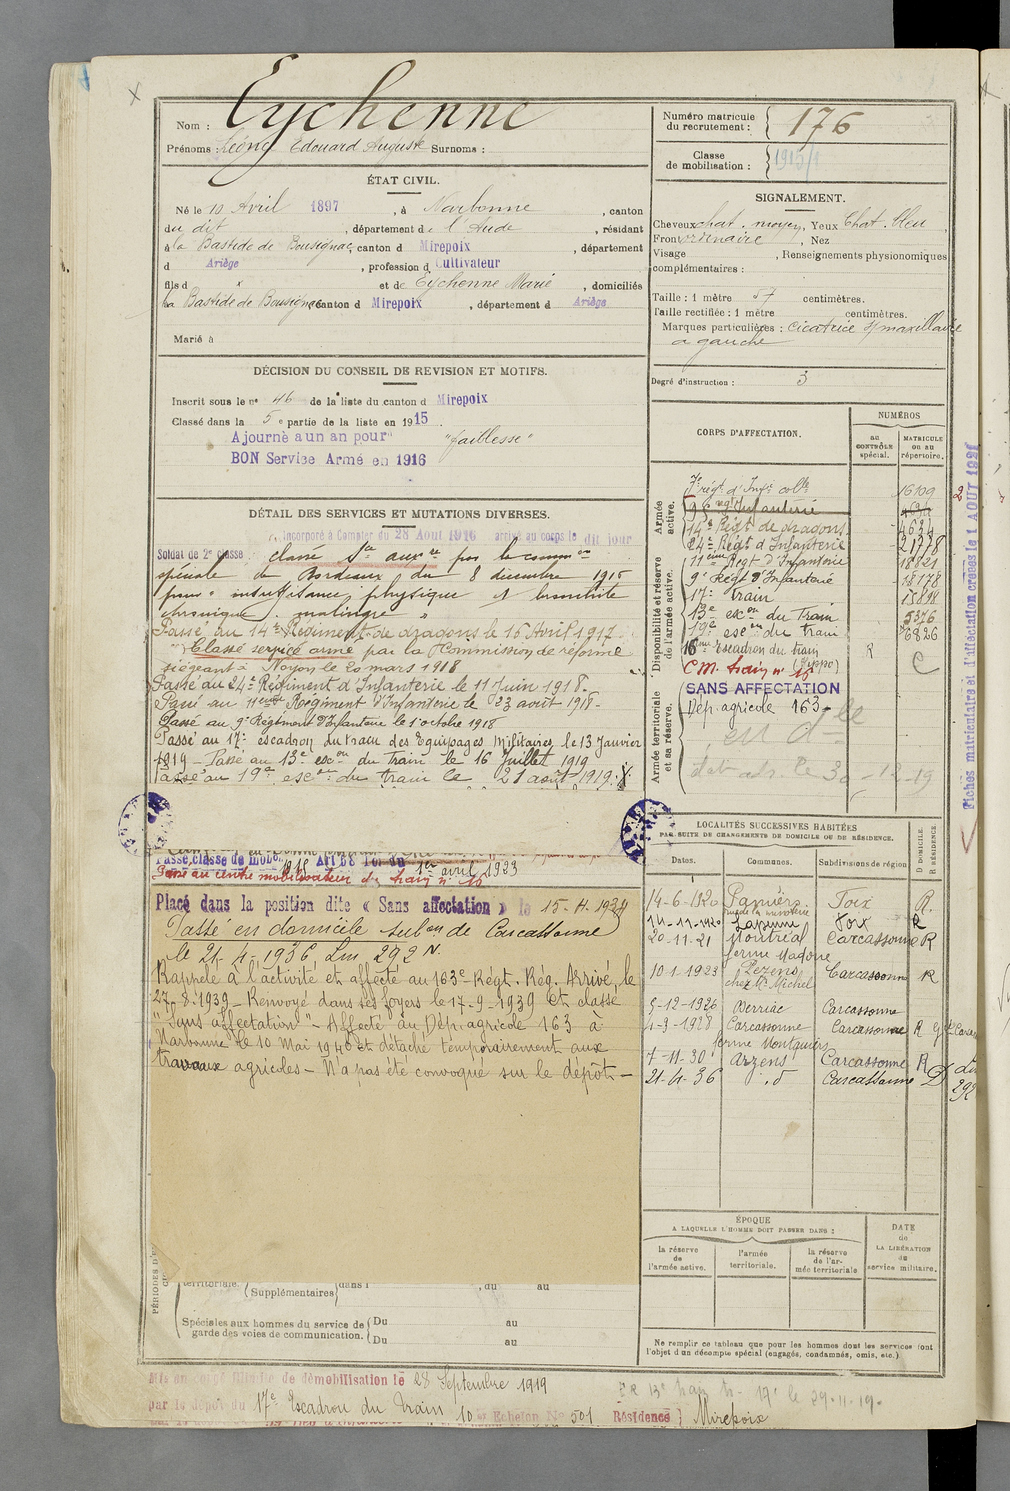 Eychenne
Nom :
Prénoms : Léon Edouard Auguste Surnoms :
Numéro matricule du recrutement : 176
Classe de mobilisation : 1915/1
ÉTAT CIVIL.
Né le 10 Avril 1897, à Narbonne, canton
du dit, département de l'Aude, résidant
à la Bastide de Bousignac, canton d Mirepoix, département
d Ariège, profession d Cultivateur
fils d x et de Eychenne Marie, domiciliés
la Bastide de Bousignac, canton d Mirepoix, département d Ariège
Marié à
SIGNALEMENT.
Cheveux chat. moyen, Yeux Chat. bleu
Front ordinaire, Nez
Visage , Renseignements physionomiques
complémentaires :
Taille : 1 mètre 57 centimètres.
Taille rectifiée : 1 mètre centimètres.
Marques particulières : cicatrice s/maxillaire
a gauche
Degré d'instruction : 3
DÉCISION DU CONSEIL DE REVISION ET MOTIFS.
Inscrit sous le n° 46 de la liste du canton d Mirepoix
Classé dans la 5e partie de la liste en 1915
Ajourné a un an pour "faiblesse"
BON Service Armé en 1916
DÉTAIL DES SERVICES ET MUTATIONS DIVERSES.
Incorporé à Compter du 28 Aout 1916 arrivé au corps le dit jour
Soldat de 2e classe
classé Sce auxre par la comm on
spéciale de Bordeaux du 8 décembre 1916
pour insuffisance physique et bronchite
chronique, malingre
Passé au 14e Régiment de dragons le 16 Avril 1917.
Classé service armé par la Commission de réforme
siégeant à Noyon le 20 mars 1918
Passé au 24e Régiment d'Infanterie le 11 Juin 1918.
Passé au 11eme Régiment d'Infanterie le 23 août 1918.
Passé au 9e Régiment d'Infanterie le 1 octobre 1918
Passé au 17e escadron du train des Equipages Militaires le 13 Janvier
1919 - Passé au 13e escon du Train le 16 Juillet 1919
Passé au 19e escon du train le 21 août 1919.
Passé classe de mob. 1915 Art 58 Loi du 1er avril 1923
Passé au centre mobilisateur du train n° 16
Placé dans la position dite « Sans affectation » le 15-11-1924
Passé en domicile subon de Carcassonne
le 21-4-1936, Lm 292 N.
Rappelé à l'activité et affecté au 163e Régt. Rég. Arrivé le
27-8-1939 - Renvoyé dans ses foyers le 17-9-1939 et classé
"Sans affectation" - Affecté au Dép. agricole 163 à
Narbonne le 10 Mai 1940 et détaché temporairement aux
travaux agricoles - N'a pas été convoqué sur le dépôt -
CORPS D'AFFECTATION.
NUMÉROS
au CONTRÔLE spécial.
MATRICULE ou au répertoire.
Armée active.
7e régt d'Infie colle 16109
14e Régt de dragons 4634
24e Régt d'Infanterie 21378
11eme Régt d'Infanterie 18821
Disponibilité et réserve de l'armée active.
9e Régt d'Infanterie 18178
17e train
13e escon du Train 5376
19e escon du train 6826
16eme Escadron du train (Hippo) R C
CM. train n° 16
Armée territoriale et sa réserve.
SANS AFFECTATION
Dép. agricole 163
Fiches matriculaire et d'affectation créées le 1 AOUT 1921
LOCALITÉS SUCCESSIVES HABITÉES
PAR SUITE DE CHANGEMENTS DE DOMICILE OU DE RÉSIDENCE.
Dates. Communes. Subdivisions de région D DOMICILE. R RÉSIDENCE
14-6-1920 Pamiers Foix R.
14-11-1920 Lapenne Foix R
20-11-21 Montréal Carcassonne R
ferme Madone
10-1-1923 Pezens Carcassonne R
chez Mr Michel
5-12-1926 Verriac Carcassonne
4-3-1928 Carcassonne Carcassonne R
ferme Montquiers
7-11-30 Arzens Carcassonne R
21-4-36 d Carcassonne D
292
ÉPOQUE
A LAQUELLE L'HOMME DOIT PASSER DANS :
la réserve de l'armée active.
l'armée territoriale.
la réserve de l'armée territoriale
DATE de LA LIBÉRATION du service militaire.
territoriale. (Supplémentaires) dans l , du au
Spéciales aux hommes du service de garde des voies de communication.
Du au
Du au
Ne remplir ce tableau que pour les hommes dont les services font l'objet d'un décompte spécial (engagés, condamnés, omis, etc.)
Mis en congé illimité de démobilisation le 28 Septembre 1919
par le dépôt du 17e Escadron du Train 10e Echelon N° 501 Résidence } Mirepoix